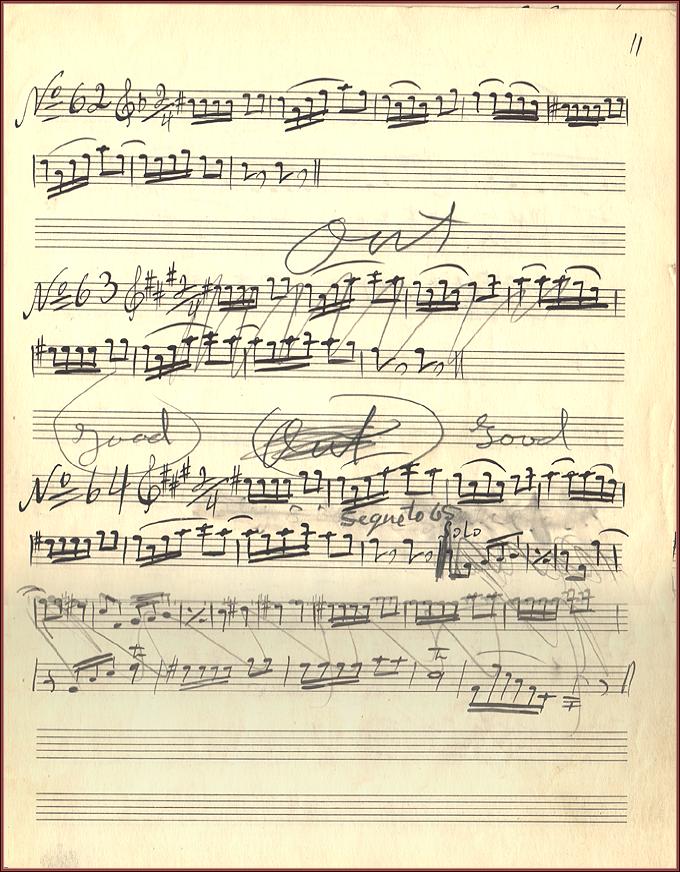 11
No 62 2/4
Out
No 63 2/4
Good Out Good
No 64 2/4
Segue to 65
Solo